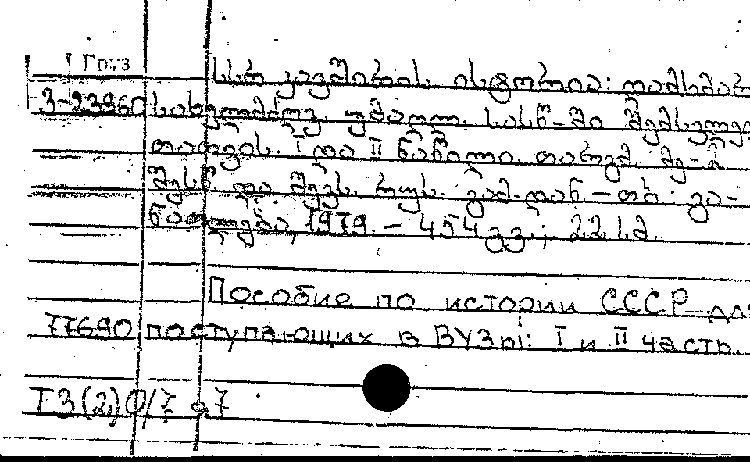 Груз
სსრ კავშირის ისტორია: დამხმარ
3-23960 სახელმძღვ. უმაღლ. სასწ-ში შემსვლელ
თათვის. I და II ნაწილი. თარგმ. მე-2
შესწ. და შევს. რუს. გამ-დან – თბ.: გა-
ნათლება, 1979. – 454 გვ.; 22 სმ.
Пособие по истории СССР для
77690 поступающих в ВУЗы: I и II часть.
Т3(2)0/7 я7